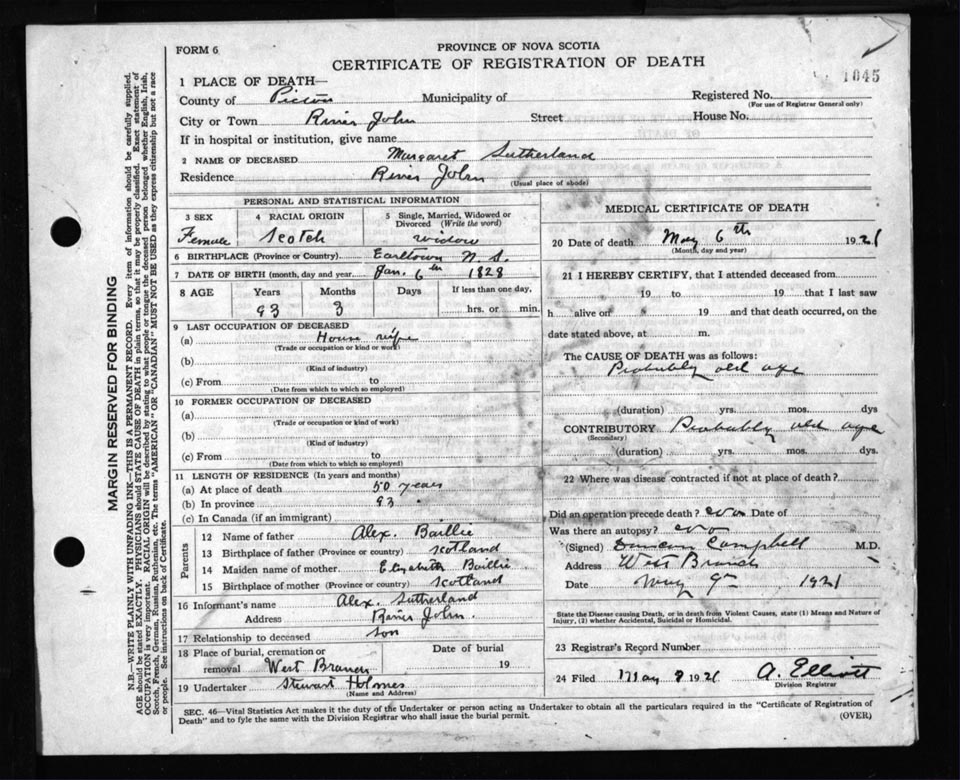 FORM 6
PROVINCE OF NOVA SCOTIA
CERTIFICATE OF REGISTRATION OF DEATH
1045
1 PLACE OF DEATH—
County of Pictou Municipality of
Registered No.
(For use of Registrar General only)
City or Town River John Street House No.
If in hospital or institution, give name
2 NAME OF DECEASED Margaret Sutherland
Residence River John
(Usual place of abode)
PERSONAL AND STATISTICAL INFORMATION
3 SEX
Female
4 RACIAL ORIGIN
Scotch
5 Single, Married, Widowed or Divorced (Write the word)
widow
6 BIRTHPLACE (Province or Country) Earltown N.S.
7 DATE OF BIRTH (month, day and year) Jan. 6th 1828
8 AGE
Years
93
Months
3
Days
If less than one day,
hrs. or min.
9 LAST OCCUPATION OF DECEASED
(a) House wife
(Trade or occupation or kind of work)
(b)
(Kind of industry)
(c) From to
(Date from which to which so employed)
10 FORMER OCCUPATION OF DECEASED
(a)
(Trade or occupation or kind of work)
(b)
(Kind of industry)
(c) From to
(Date from which to which so employed)
11 LENGTH OF RESIDENCE (In years and months)
(a) At place of death 50 years
(b) In province 93
(c) In Canada (if an immigrant)
Parents
12 Name of father Alex. Baillie
13 Birthplace of father (Province or country) Scotland
14 Maiden name of mother Elizabeth Baillie
15 Birthplace of mother (Province or country) Scotland
16 Informant's name Alex. Sutherland
Address River John
17 Relationship to deceased son
18 Place of burial, cremation or removal West Branch
Date of burial 19
19 Undertaker Stewart Holmes
(Name and Address)
MEDICAL CERTIFICATE OF DEATH
20 Date of death May 6th 1921
(Month, day and year)
21 I HEREBY CERTIFY, that I attended deceased from
19 to 19 that I last saw
h alive on 19 and that death occurred, on the
date stated above, at m.
The CAUSE OF DEATH was as follows:
Probably old age
(duration) yrs. mos. dys
CONTRIBUTORY Probably old age
(Secondary)
(duration) yrs. mos. dys.
22 Where was disease contracted if not at place of death?
Did an operation precede death? no Date of
Was there an autopsy? no
(Signed) Duncan Campbell M.D.
Address West Branch
Date May 9th 1921
State the Disease causing Death, or in death from Violent Causes, state (1) Means and Nature of
Injury, (2) whether Accidental, Suicidal or Homicidal.
23 Registrar's Record Number
24 Filed May 9 1921 A. Elliott
Division Registrar
SEC. 46—Vital Statistics Act makes it the duty of the Undertaker or person acting as Undertaker to obtain all the particulars required in the "Certificate of Registration of
Death" and to fyle the same with the Division Registrar who shall issue the burial permit.
(OVER)
MARGIN RESERVED FOR BINDING
N.B.—WRITE PLAINLY WITH UNFADING INK—THIS IS A PERMANENT RECORD. Every item of information should be carefully supplied.
AGE should be stated EXACTLY. PHYSICIANS should STATE CAUSE OF DEATH in plain terms, so that it may be properly classified. Exact statement of
OCCUPATION is very important. RACIAL ORIGIN will be described by stating to what people or tongue the deceased person belonged whether English, Irish,
Scotch, French, German, Russian, Ruthenian, etc. The terms "AMERICAN" OR "CANADIAN" MUST NOT BE USED as they express citizenship but not a race
or people. See instructions on back of Certificate.